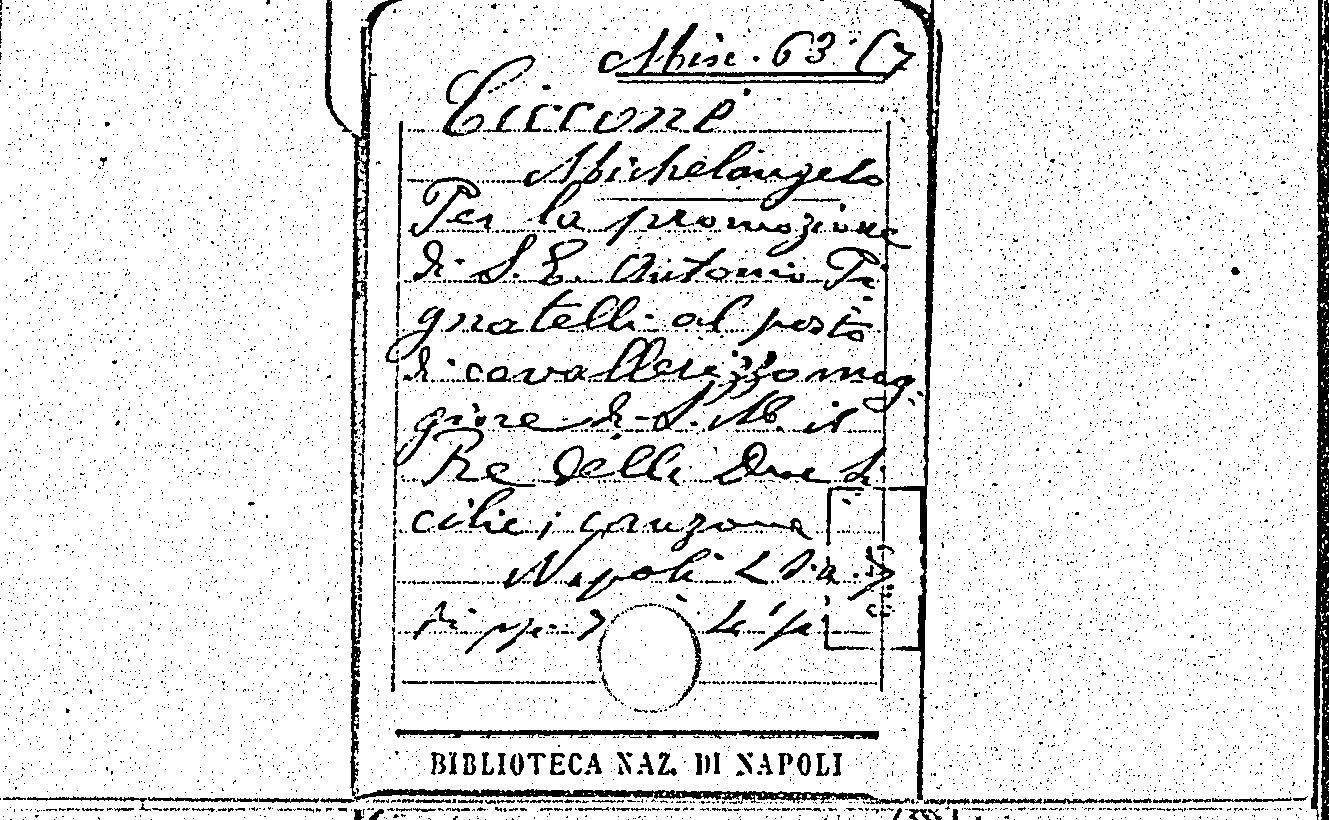 Misc. 63 (7
Ciccone
Michelangelo
Per la promozione
di S. E. Antonio Pi
gnatelli al posto
di cavallerizzo mag-
giore di S. M. il
Re delle Due Si
cilie; canzone
Napoli
BIBLIOTECA NAZ. DI NAPOLI